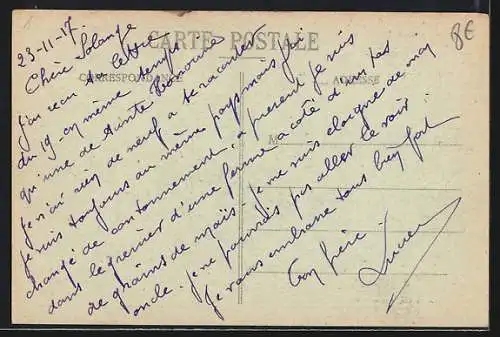 8€
CARTE POSTALE
CORRESPONDANCE
ADRESSE
M
23-11-17
Chère Solange
J'ai reçu ta lettre
du 19 en même temps
qu'une de tante Honorine
Je n'ai rien de neuf à te raconter
Je suis toujours au même pays mais j'ai
changé de cantonnement, à présent je suis
dans le grenier d'une ferme à côté d'un tas
de grains de maïs. Je me suis éloigné de mon
oncle. Je ne pourrais pas aller le voir.
Je vous embrasse tous bien fort
Ton frère
Lucien